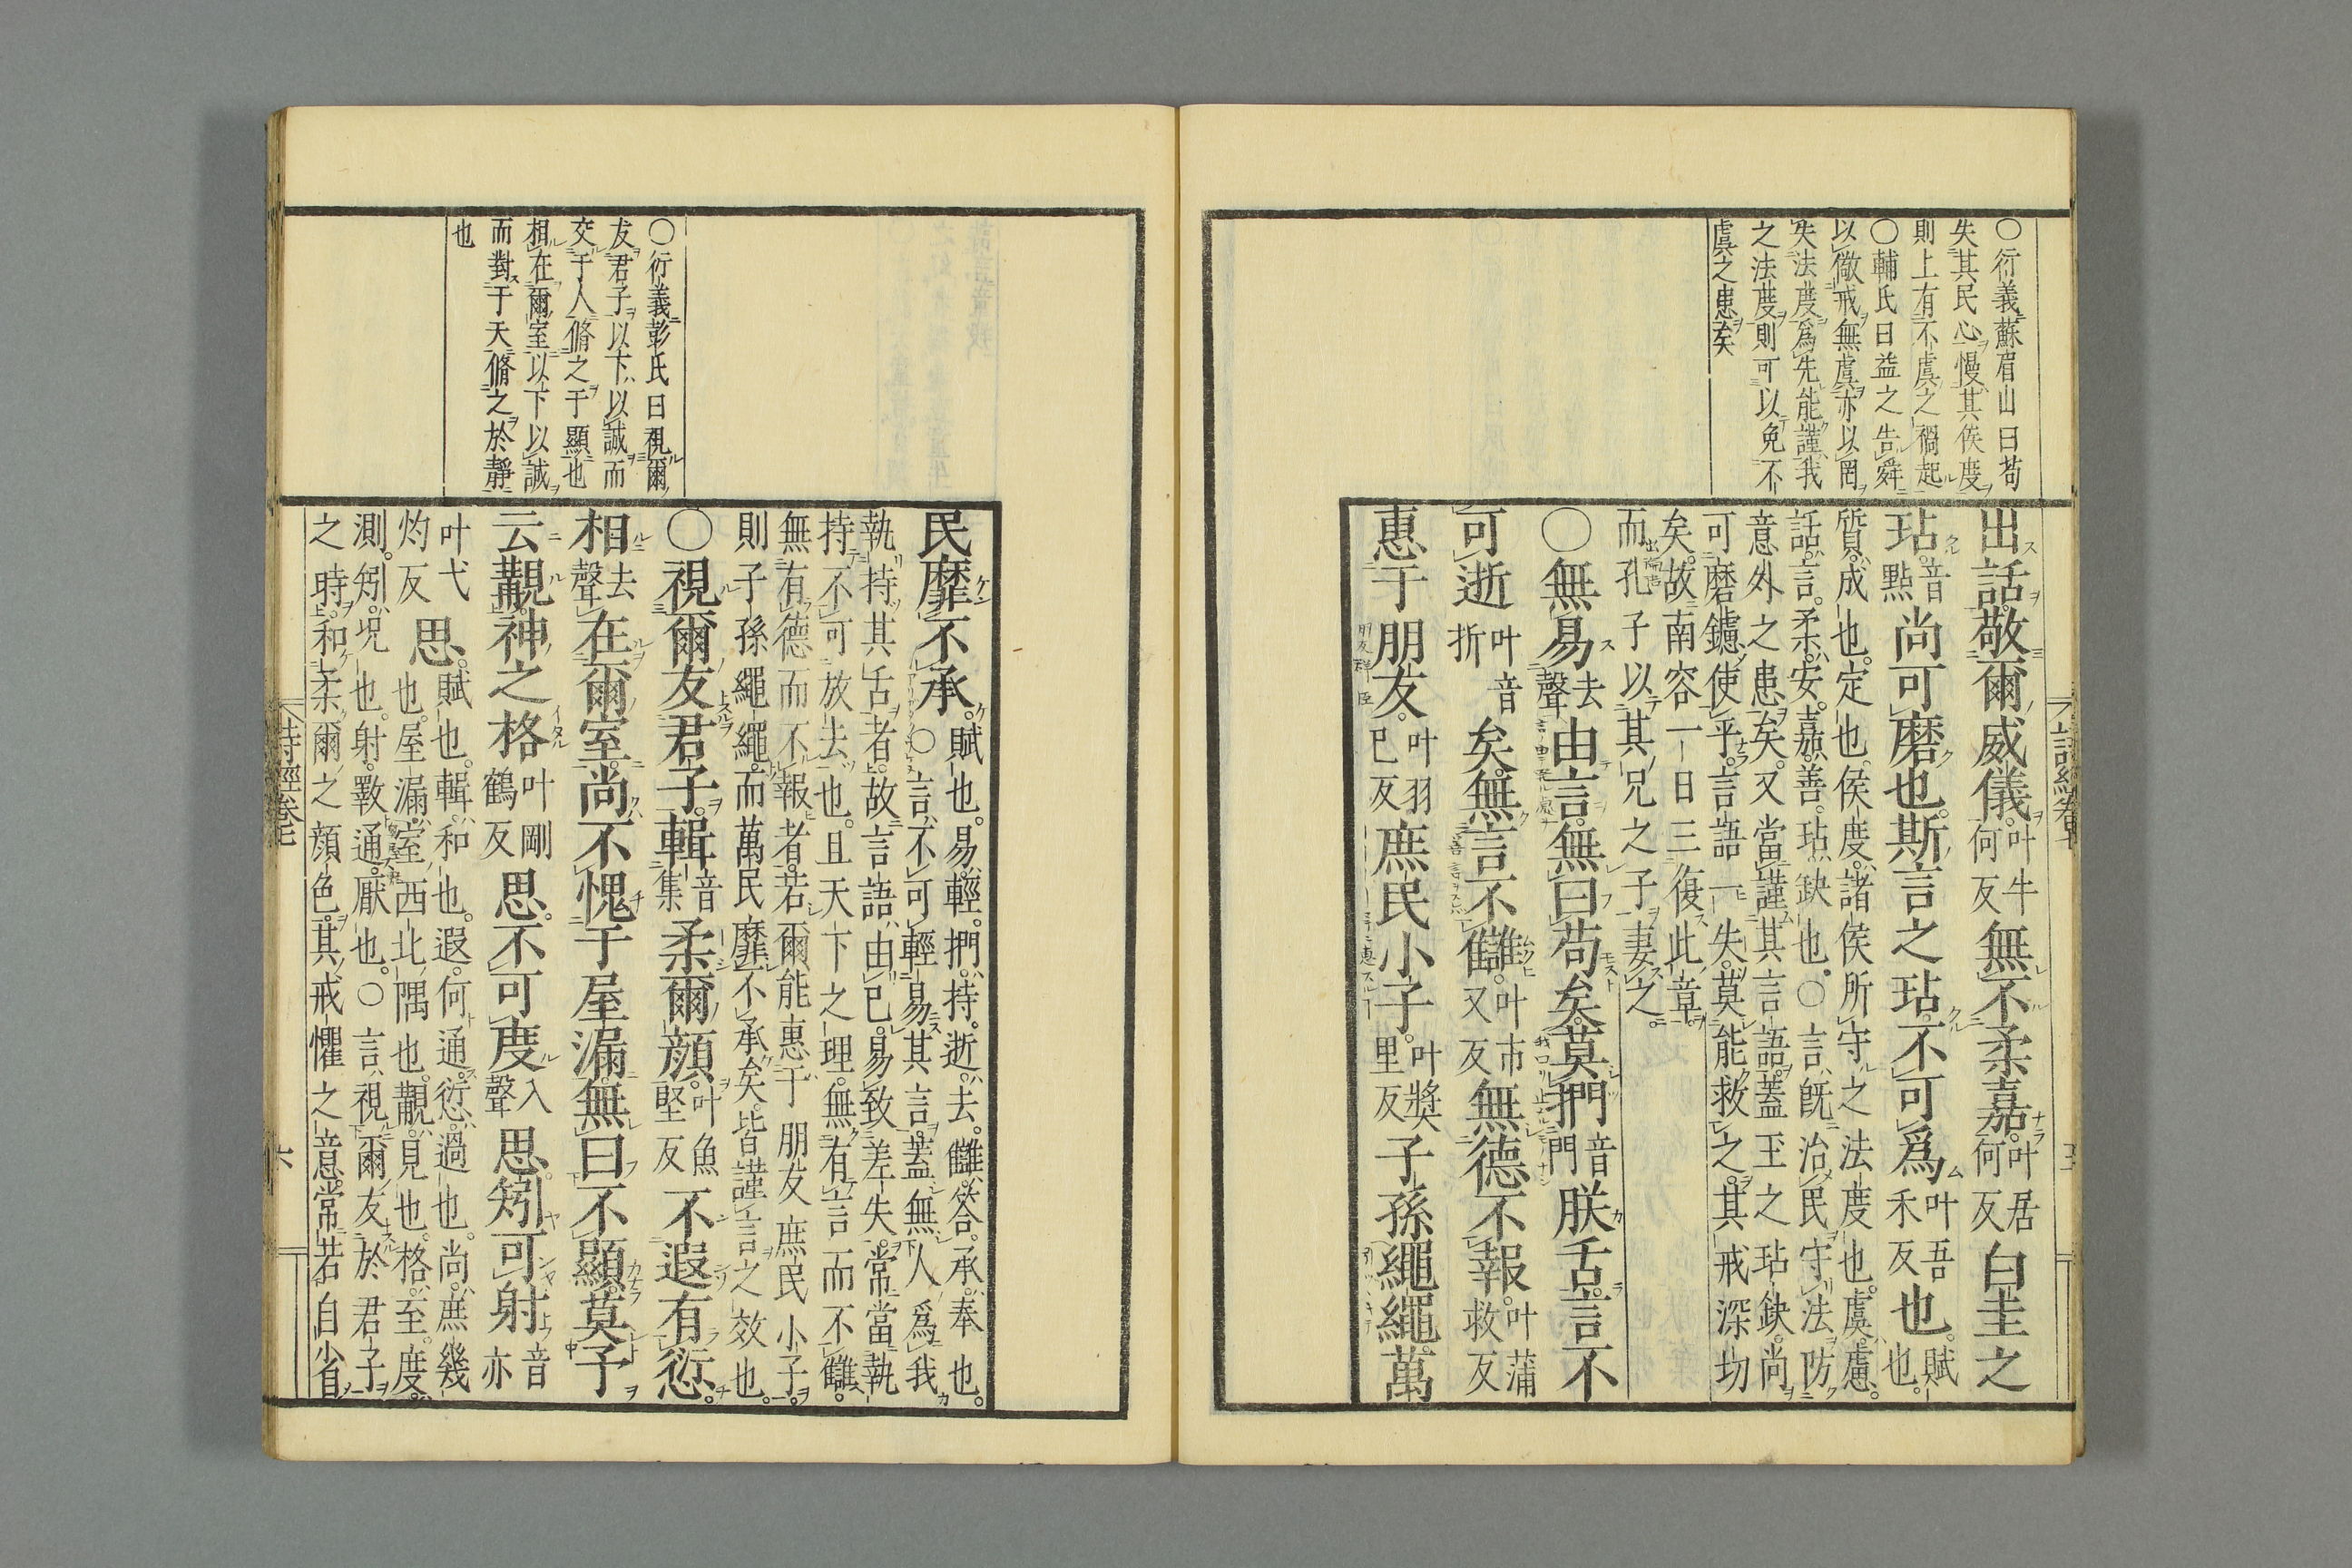 ○衍義蘇眉山曰苟
失其民心慢其侯度
則上有不虞之禍起
○輔氏曰益之告舜
以儆戒無虞亦以罔
失法度爲先能謹我
之法度則可以免不
虞之患矣
出話敬爾威儀叶牛何反無不柔嘉叶居何反白圭之
玷音點尚可磨也斯言之玷不可爲叶吾禾反也賦也
質成也定也侯度諸侯所守之法度也虞慮
話言柔安嘉善玷缺也○言既治民守法防
意外之患矣又當謹其言語蓋玉之玷缺尚
可磨鑢使平言語一失莫能救之其戒深切
矣故南容一日三復此章
而孔子以其兄之子妻之
○無易去聲由言無曰苟矣莫捫音門朕舌言不
可逝叶音折矣無言不讎叶市又反無德不報叶蒲救反
惠于朋友叶羽已反庶民小子叶獎里反子孫繩繩萬
○衍義彭氏曰視爾
友君子以下以誠而
交于人脩之于顯也
相在爾室以下以誠
而對于天脩之於靜
也
民靡不承賦也易輕捫持逝去讎答承奉也
○言不可輕易其言蓋無人爲我
執持其舌者故言語由已易致差失常當執
持不可放去也且天下之理無有言而不讎
無有德而不報者若爾能惠于朋友庶民小子
則子孫繩繩而萬民靡不承矣皆謹言之效也
○視爾友君子輯音集柔爾顏叶魚堅反不遐有愆
相去聲在爾室尚不愧于屋漏無曰不顯莫予
云覯神之格叶剛鶴反思不可度入聲思矧可射音亦
叶弋灼反思賦也輯和也遐何通愆過也尚庶幾
也屋漏室西北隅也覯見也格至度
測矧况也射斁通厭也○言視爾友於君子
之時和柔爾之顏色其戒懼之意常若自省
詩經卷七
六